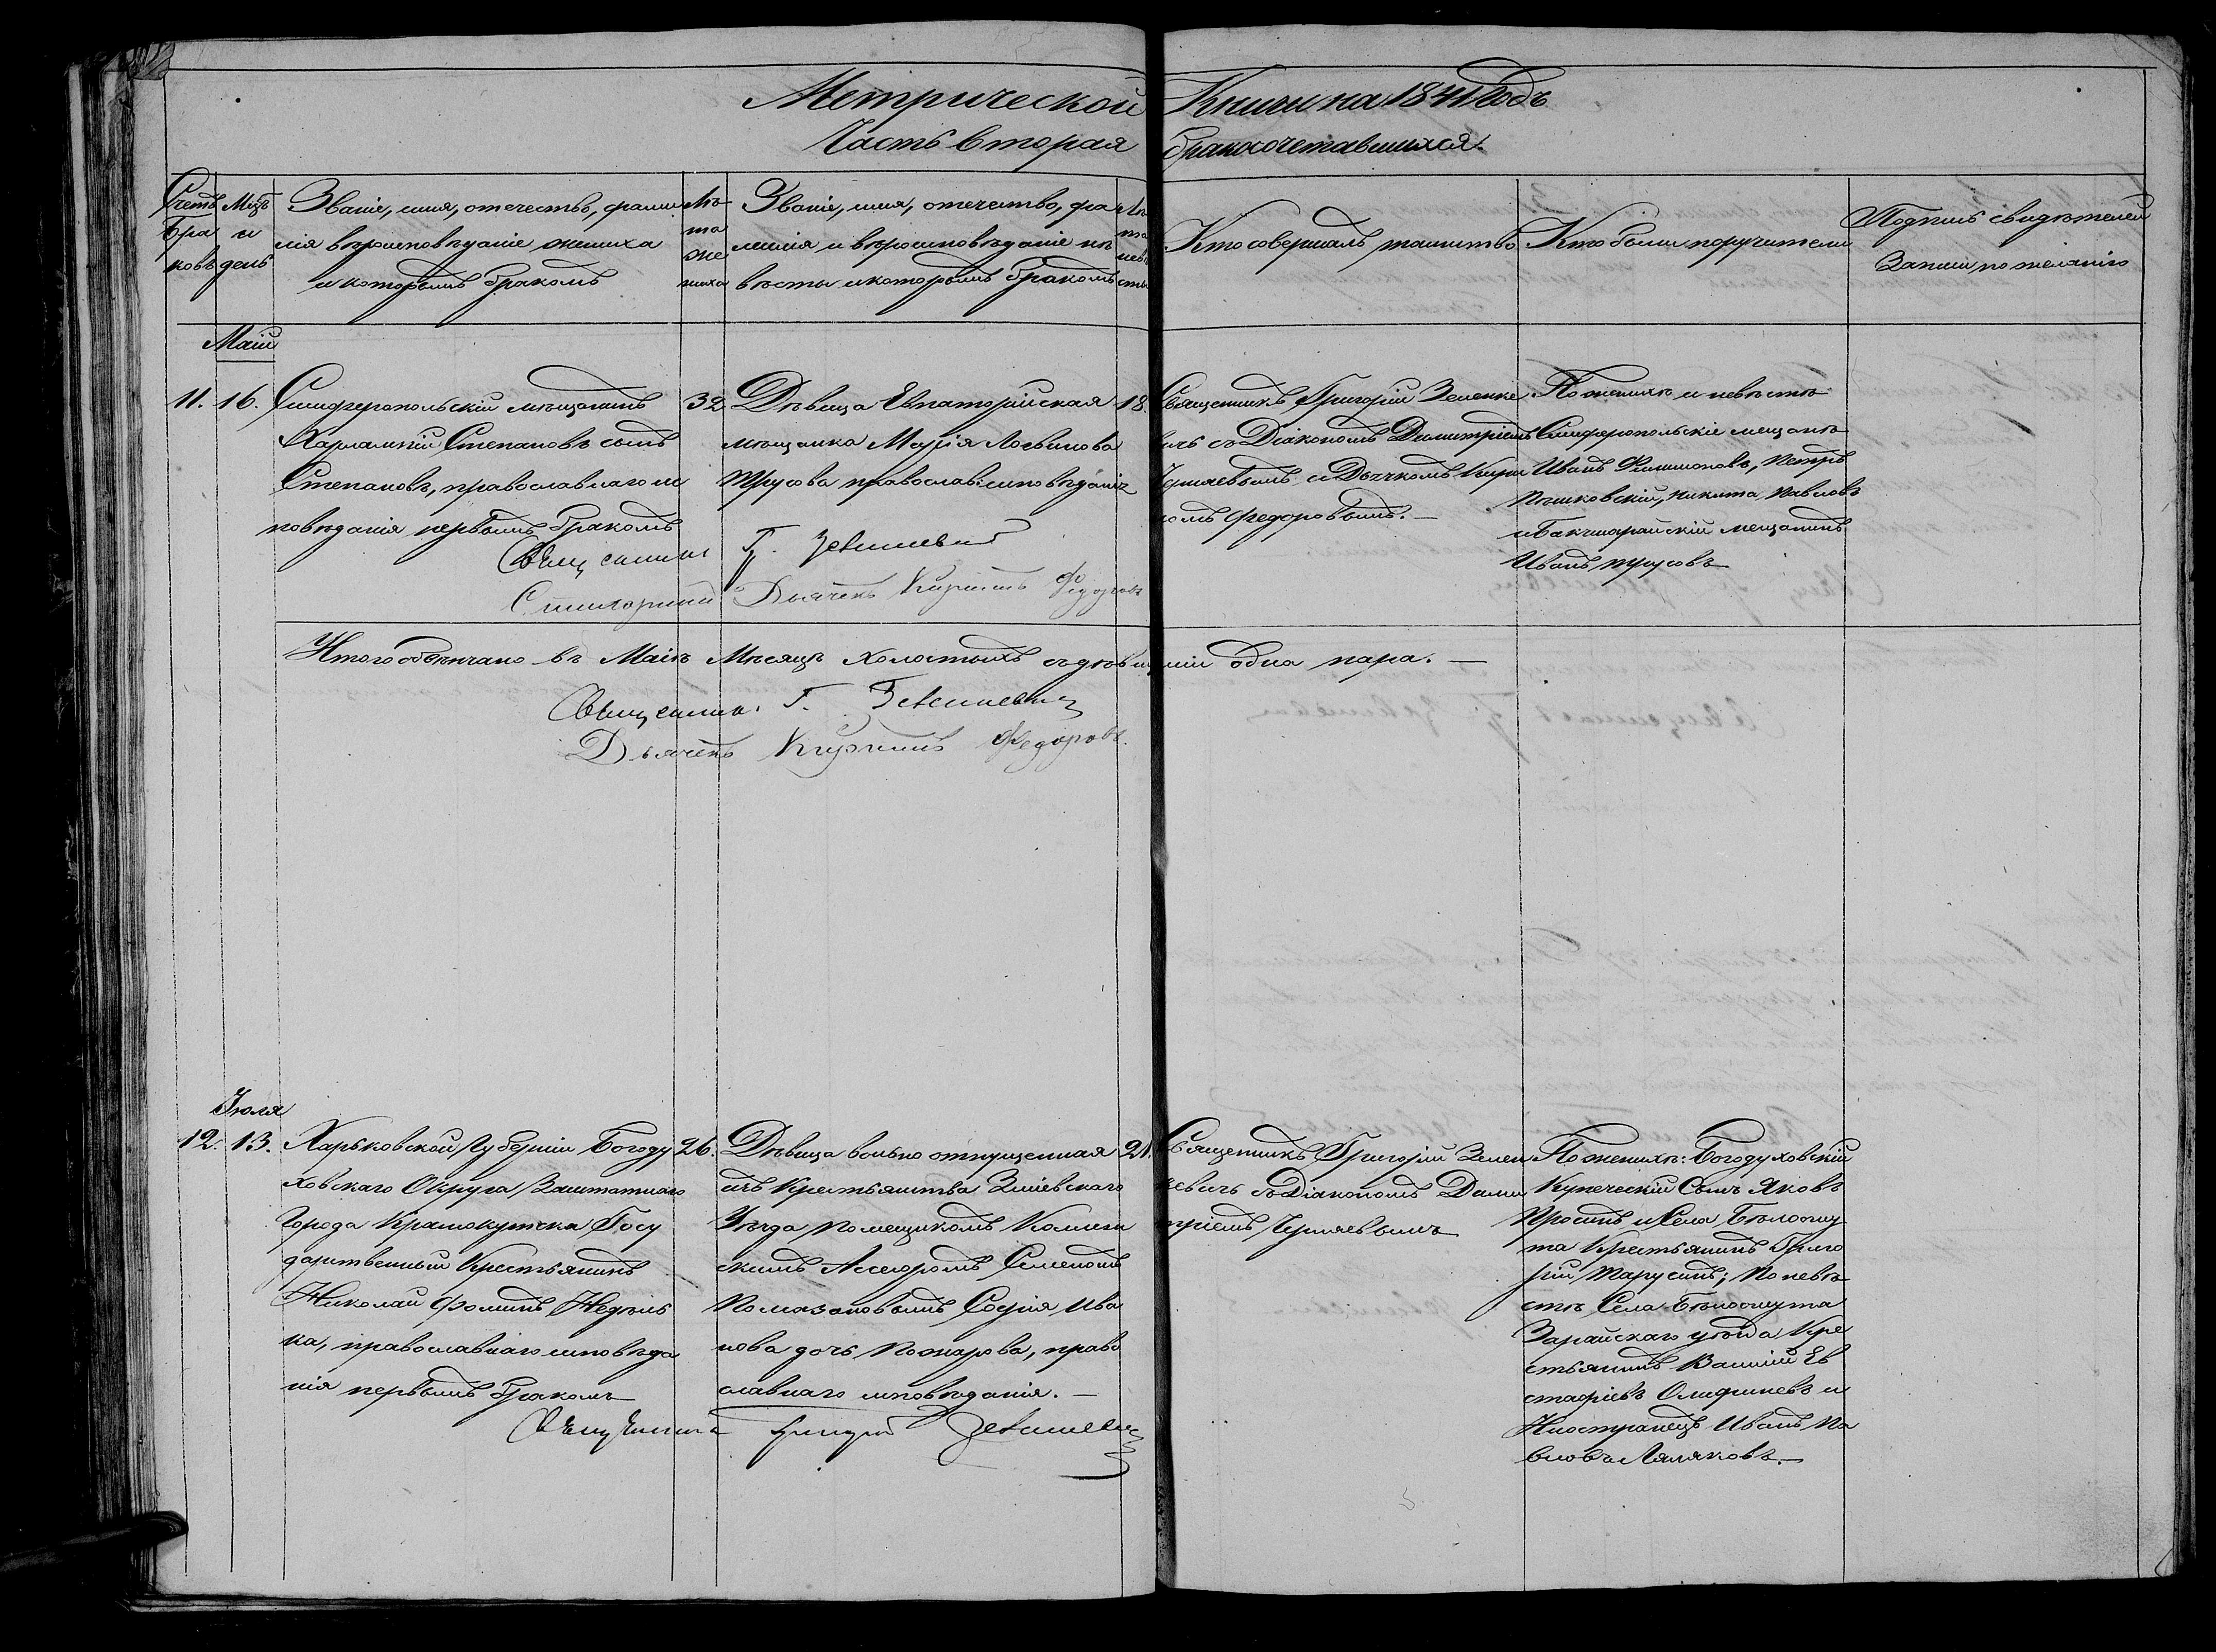 Метрической Книги на 1841 Годъ
Часть вторая бракосочетавшихся.
Счетъ
бра
ковъ
Мсцъ
и
день
Званіе, имя, отечество, фами
лія вѣроисповѣданіе жениха
и которымъ бракомъ
Лѣ
та
же
ниха
Званіе, имя, отечество, фа
милія и вѣроисповѣданіе не
вѣсты и которымъ бракомъ
Лѣ
та
невѣ
сты
Кто совершалъ таинство
Кто были поручители
Подпись свидѣтелей
Записи по желанію
Маій
11.
16.
Симферопольскій мѣщанинъ
Харлампій Степановъ сынъ
Степановъ, православнаго ис
повѣданія первымъ бракомъ
32
Дѣвица Евпаторійская
мѣщанка Марія Логвинова
Трусова православ: исповѣданія
18.
Священникъ Григорій Зеленке
вичъ съ Діакономъ Димитріемъ
Чернявымъ и Дьячкомъ Кири
ломъ Федоровымъ.
По женихѣ и невѣстѣ
Симферопольскіе мещане
Иванъ Филимоновъ, Петръ
Пешковскій, Никита Павловъ
и Бакчисарайскій мещанинъ
Иванъ Трусовъ
Священникъ Г. Зеленкевичъ
Стихарный Дьячекъ Кирилъ Федоровъ
Итого обвѣнчано въ Маіѣ Мѣсяцѣ холостыхъ съ дѣвицами одна пара.
Священникъ Г. Зеленкевичъ
Дьячекъ Кирилъ Федоровъ.
Іюля
12.
13.
Харьковской Губерніи Богоду
ховскаго Округа Заштатнаго
Города Краснокутска Госу
дарственный Крестьянинъ
Николай Фоминъ Недѣль
ка, православнаго исповѣда
нія первымъ бракомъ
26.
Дѣвица вольно отпущенная
изъ Крестьянства Зміевскаго
Уѣзда Помещикомъ Коллеж
скимъ Асесоромъ Семеномъ
Помазановымъ Софія Ива
нова дочь Пожарова, право
славнаго исповѣданія.
21.
Священникъ Григорій Зелен
кевичъ съ Діакономъ Дими
тріемъ Чернявымъ
По женихѣ: Богодуховскій
Купеческій Сынъ Яковъ
Просинъ и Села Бѣлоому
та Крестьянинъ Григо
рій Тарусинъ; По невѣ
стѣ Села Бѣлоомута
Зарайскаго уѣзда Кре
стьянинъ Василій Ев
стафіевъ Олиферевъ и
Иностранецъ Иванъ Па
вловъ Ляляковъ.
Священникъ Григорій Зеленкевичъ